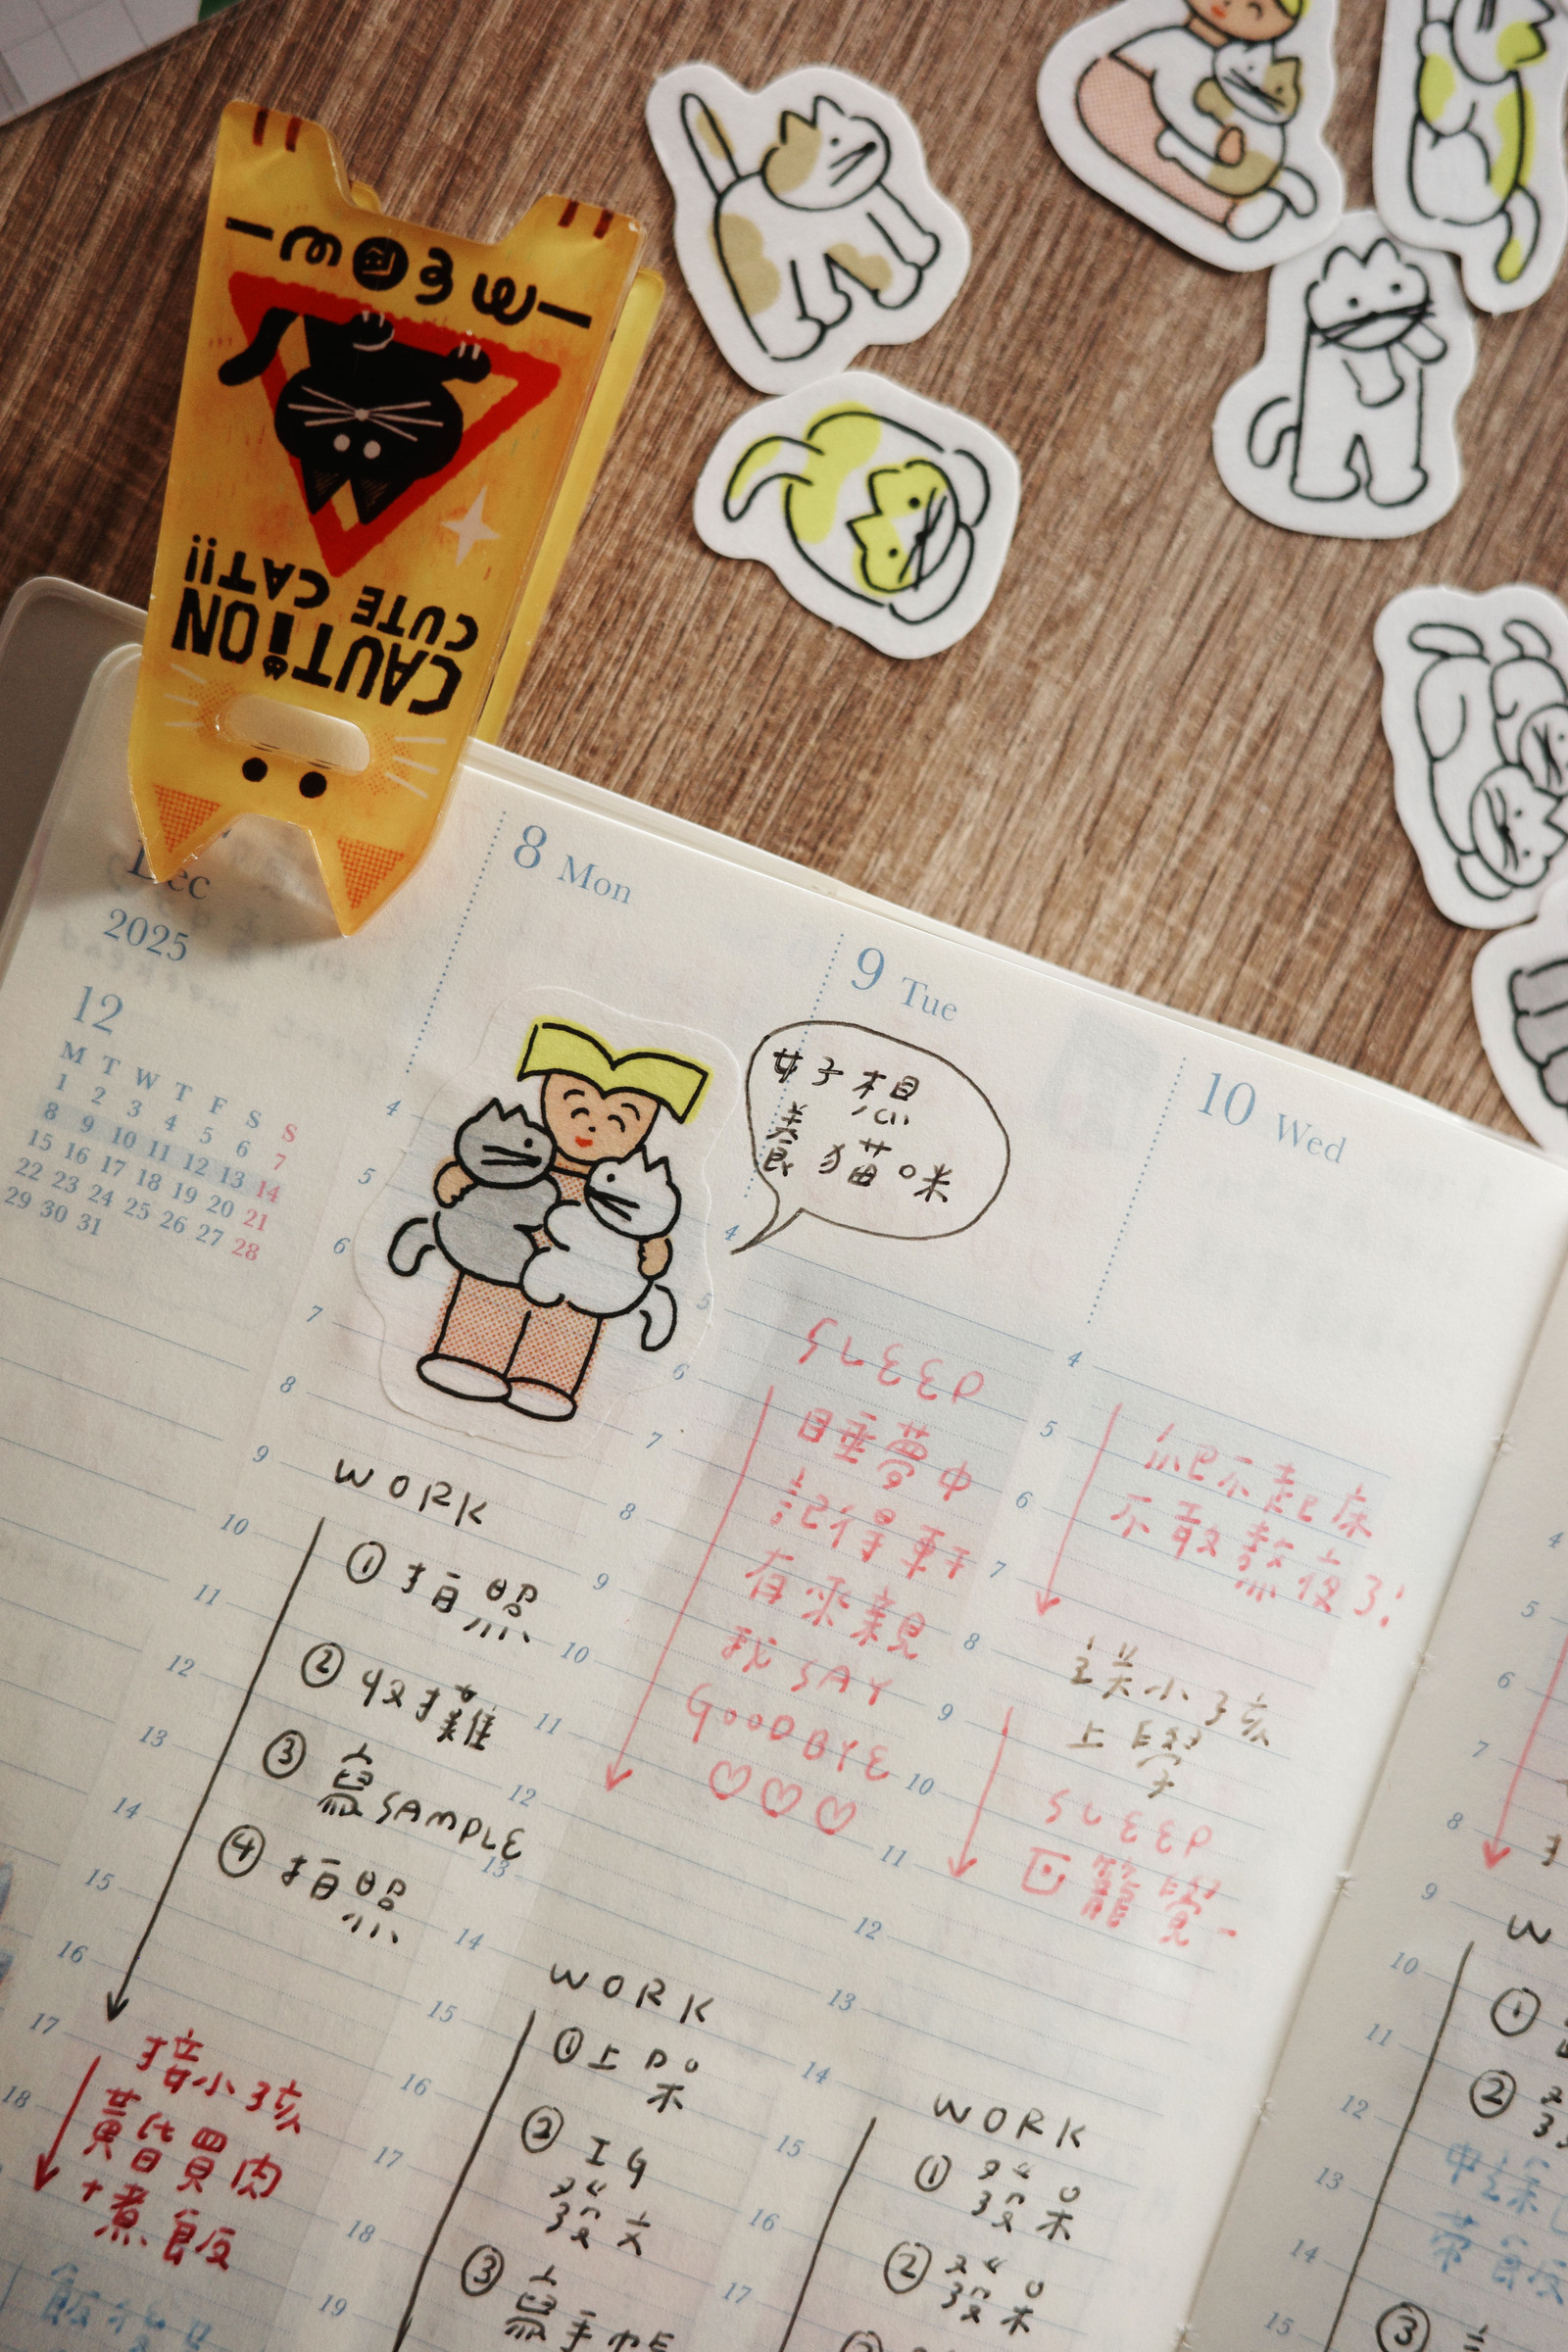 CAUTION
CUTE CAT!!
Dec
2025
12
M T W T F S S
1 2 3 4 5 6 7
8 9 10 11 12 13 14
15 16 17 18 19 20 21
22 23 24 25 26 27 28
29 30 31
8 Mon
4
5
6
7
8
9
10
11
12
13
14
15
16
17
18
WORK
① 拍照
② 收攤
③ 寫 SAMPLE
④ 拍照
接小孩
黃昏買肉
+煮飯
9 Tue
好想
養貓咪
4
5
6
7
8
9
10
11
12
13
14
15
16
17
18
19
SLEEP
睡夢中
記得軒
有來親
我 SAY
GOODBYE
♡♡♡
WORK
① 上架
② IG
發文
③ 寫手帳
10 Wed
4
5
6
7
8
9
10
11
12
13
14
15
16
17
爬不起床
不敢熬夜了!
送小孩
上學
SLEEP
回籠覺~
WORK
①
②
4
5
6
7
8
9
10
11
12
13
14
15
W
①
②
③